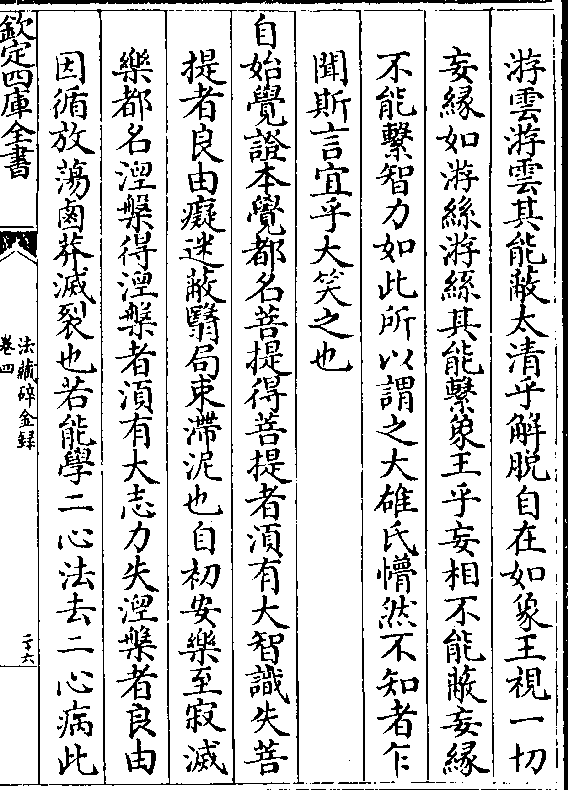 游雲游雲其能蔽太清乎解脱自在如象王視一切
妄緣如游絲游絲其能繫象王乎妄相不能蔽妄緣
不能繫智力如此所以謂之大雄氏懵然不知者乍
聞斯言宜乎大笑之也
自始覺證本覺都名菩提得菩提者湏有大智識失菩
提者良由癡迷蔽翳局束滯泥也自初安樂至寂滅
樂都名涅槃得涅槃者湏有大志力失涅槃者良由
因循放蕩鹵莽滅裂也若能學二心法去二心病此
欽定四庫全書
法藏碎金録
卷四
二十六